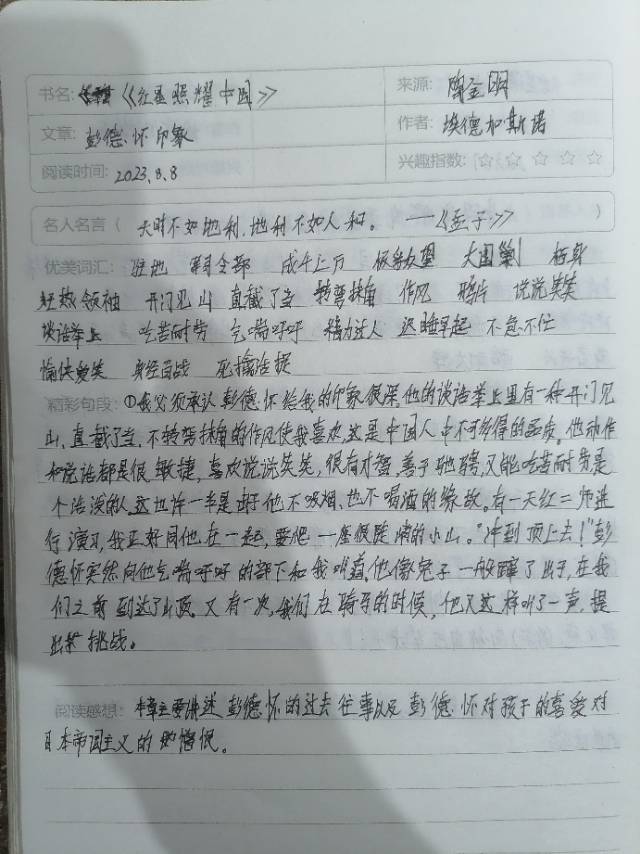 书名: 《红星照耀中国》 来源: 陶金明
文章: 彭德怀印象 作者: 埃德加斯诺
阅读时间: 2023.8.8 兴趣指数: ☆ ☆ ☆ ☆ ☆
名人名言( 天时不如地利,地利不如人和。——《孟子》 )
优美词汇: 驻地 司令部 成千上万 大团
狂热 领袖 开门见山 直截了当 转弯抹角 作风 鸦片 说说笑笑
谈话举止 吃苦耐劳 气喘吁吁 精力过人 迟睡早起 不急不忙
愉快爱笑 身经百战 死擒活捉
精彩句段: ①我必须承认彭德怀给我的印象很深,他的谈话举止里有一种开门见
山、直截了当、不转弯抹角的作风使我喜欢,这是中国人中不可多得的品质。他动作
和说话都是很敏捷,喜欢说说笑笑,很有才智,善于驰骋,又能吃苦耐劳,是
个活泼的人。这也许一半是由于他不吸烟、也不喝酒的缘故。有一天红二师进
行演习,我正好同他在一起,要爬一座很陡峭的小山。"冲到顶上去!"彭
德怀突然向他气喘吁吁的部下和我叫道,他像兔子一般蹿了出去,在我
们之前到达了山顶。又有一次,我们在骑马的时候,他又这样叫了一声,提
出挑战。
阅读感想: 本章主要讲述彭德怀的过去往事以及彭德怀对孩子的喜爱对
日本帝国主义的憎恨。